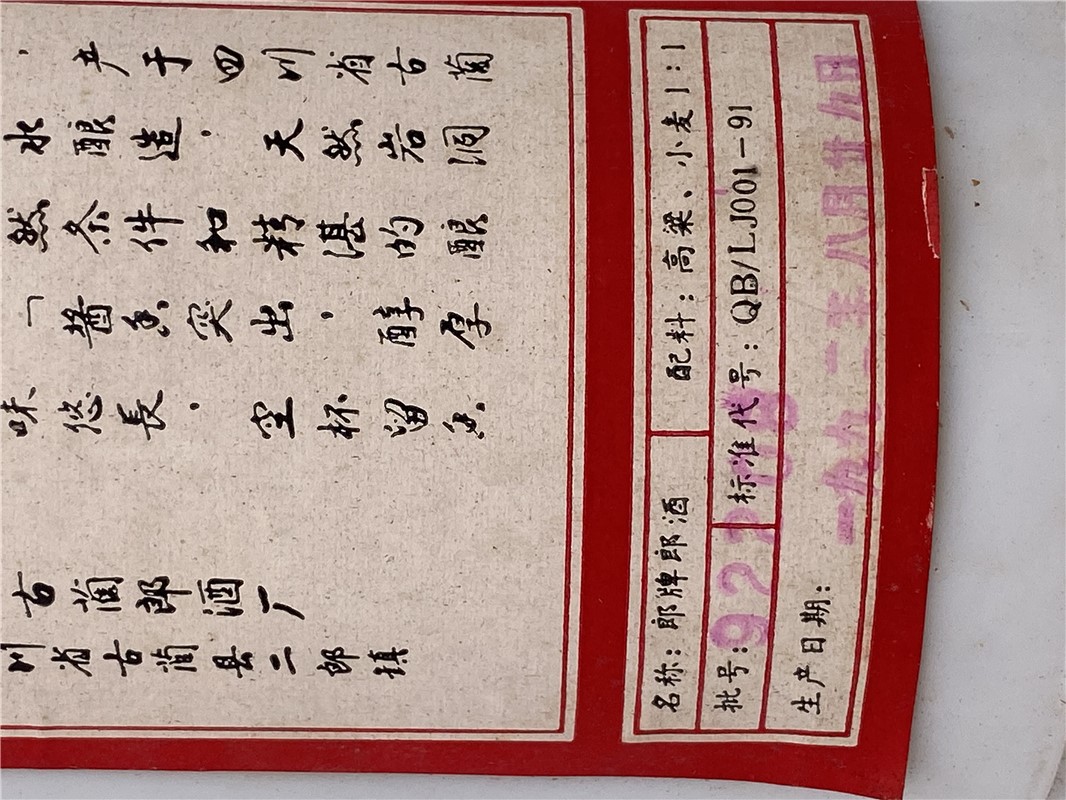 产于四川省古蔺
水酿造,天然岩洞
然条件和精湛的酿
「酱香突出,醇厚
味悠長,空杯留香
古蔺郎酒厂
川省古蔺县二郎镇
名称:郎牌郎酒 配料:高粱、小麦1:1
批号: 标准代号:QB/LJ001-91
生产日期:一九九二年八月廿九日